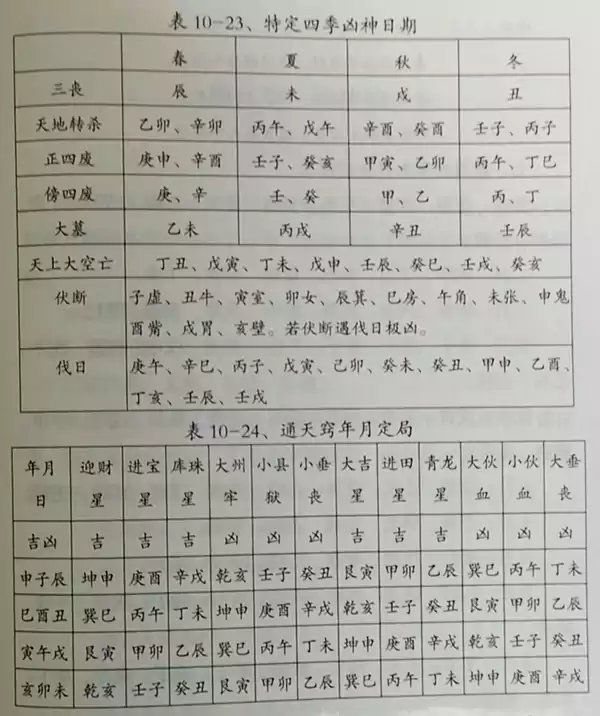 表 10-23、特定四季凶神日期
春 夏 秋 冬
三丧 辰 未 戌 丑
天地转杀 乙卯、辛卯 丙午、戊午 辛酉、癸酉 壬子、丙子
正四废 庚申、辛酉 壬子、癸亥 甲寅、乙卯 丙午、丁巳
傍四废 庚、辛 壬、癸 甲、乙 丙、丁
大墓 乙未 丙戌 辛丑 壬辰
天上大空亡 丁丑、戊寅、丁未、戊申、壬辰、癸巳、壬戌、癸亥
伏断 子虚、丑牛、寅室、卯女、辰箕、巳房、午角、未张、申鬼
酉觜、戌胃、亥壁。若伏断遇代日极凶。
代日 庚午、辛巳、丙子、戊寅、己卯、癸未、癸丑、甲申、乙酉、
丁亥、壬辰、壬戌
表 10-24、通天窍年月定局
年月 迎财 进宝 库珠 大州 小县 小垂 大吉 进田 青龙 大伙 小伙 大垂
日 星 星 星 牢 狱 丧 星 星 星 血 血 丧
吉凶 吉 吉 吉 凶 凶 凶 吉 吉 吉 凶 凶 凶
申子辰 坤申 庚酉 辛戌 乾亥 壬子 癸丑 艮寅 甲卯 乙辰 巽巳 丙午 丁未
巳酉丑 巽巳 丙午 丁未 坤申 庚酉 辛戌 乾亥 壬子 癸丑 艮寅 甲卯 乙辰
寅午戌 艮寅 甲卯 乙辰 巽巳 丙午 丁未 坤申 庚酉 辛戌 乾亥 壬子 癸丑
亥卯未 乾亥 壬子 癸丑 艮寅 甲卯 乙辰 巽巳 丙午 丁未 坤申 庚酉 辛戌